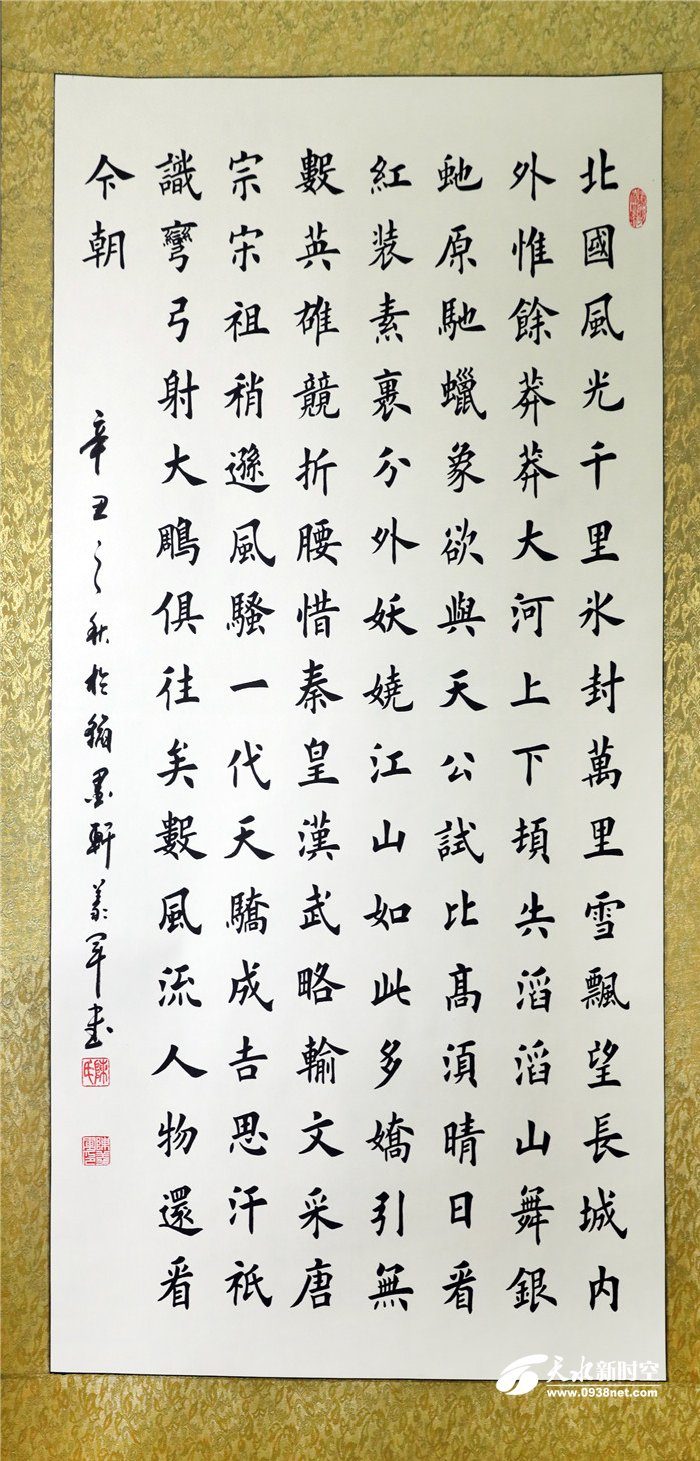 北國風光千里氷封萬里雪飄望長城内
外惟餘莽莽大河上下頓失滔滔山舞銀
虵原馳蠟象欲與天公試比髙湏晴日看
紅装素裹分外妖嬈江山如此多嬌引無
數英雄競折腰惜秦皇漢武略輸文采唐
宗宋祖稍遜風騷一代天驕成吉思汗祇
識彎弓射大鵰俱往矣數風流人物還看
今朝
辛丑之秋於翰墨軒義軍書
陳氏
天水新时空
www.0938net.com